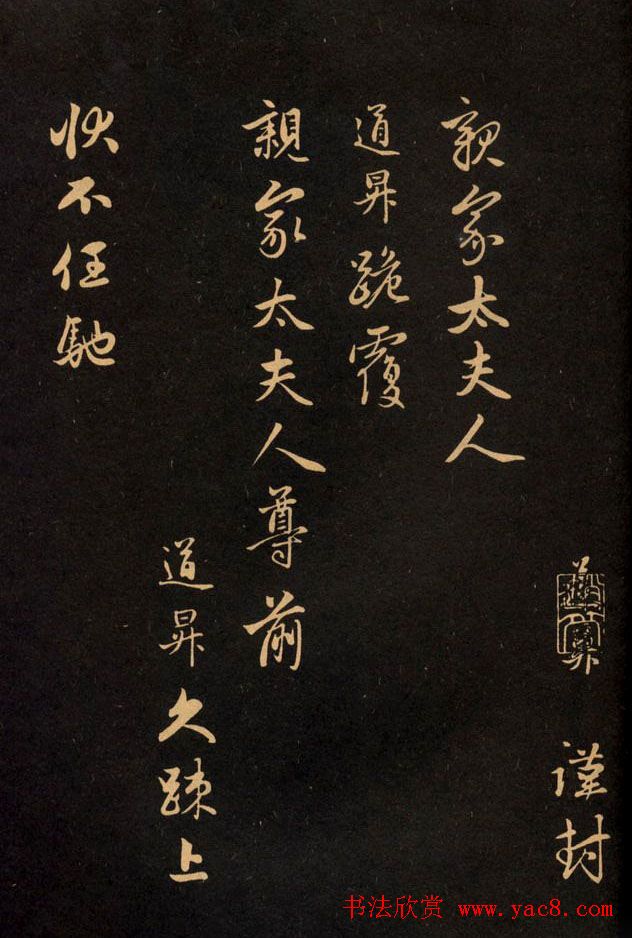 謹封
親家太夫人
道昇跪覆
親家太夫人尊前
道昇久踈上
狀不任馳
书法欣赏 www.yac8.com